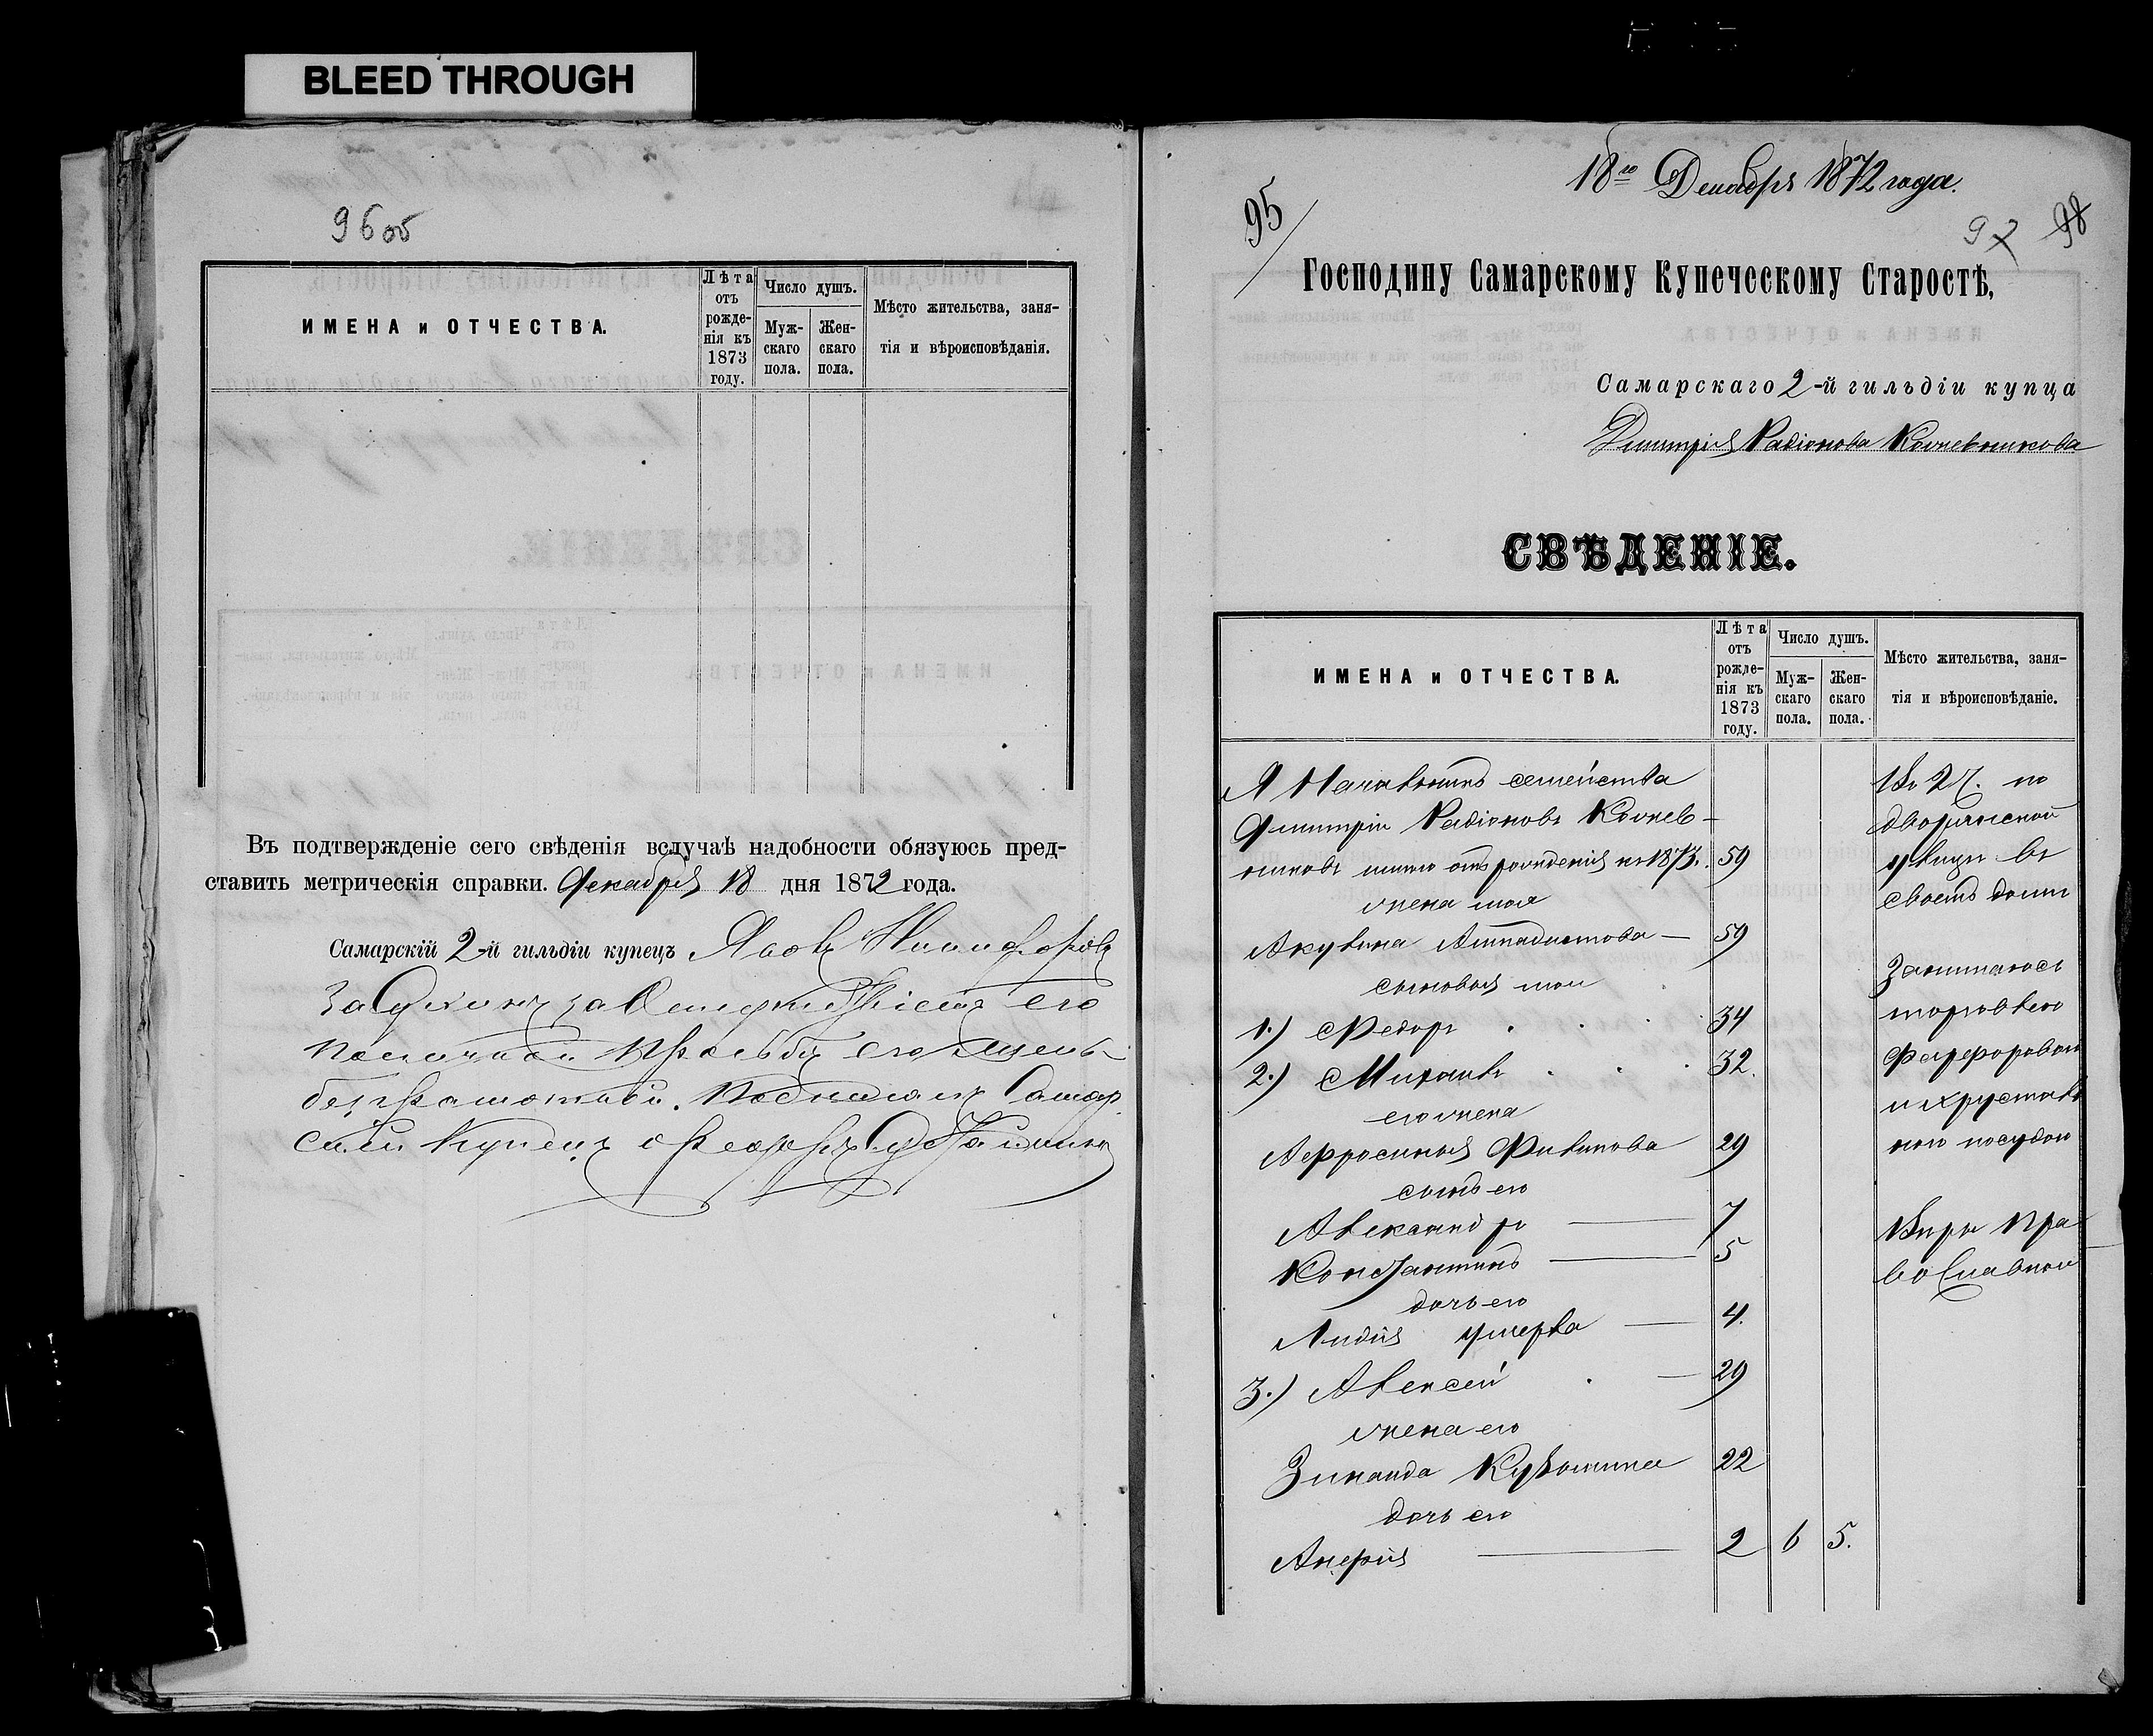 BLEED THROUGH
96 об
ИМЕНА и ОТЧЕСТВА.
Лѣта отъ рожденія къ 1873 году.
Число душъ.
Мужскаго пола.
Женскаго пола.
Мѣсто жительства, заня-
тія и вѣроисповѣданія.
Въ подтвержденіе сего свѣденія вслучаѣ надобности обязуюсь пред-
ставить метрическія справки. Декабря 18 дня 1872 года.
Самарскій 2-й гильдіи купецъ Яковъ Никифоровъ
его
просьбы его
Самар
Купецъ
95
18го Декабря 1872 года.
97 98
Господину Самарскому Купеческому Старостѣ,
Самарскаго 2-й гильдіи купца
Дмитрія Радіонова Кожевникова
СВѢДЕНІЕ.
ИМЕНА и ОТЧЕСТВА.
Лѣта отъ рожденія къ 1873 году.
Число душъ.
Мужскаго пола.
Женскаго пола.
Мѣсто жительства, заня-
тія и вѣроисповѣданіе.
Я Началникъ семейства
Дмитрій Радіоновъ Кожев-
никовъ отъ рожденія къ 1873. 59
жена моя
Акулина 59
сыновья мои
1.) Федоръ 34
2.) Михаилъ 32.
его жена
Аефросинья Филипова 29
сынъ его
Александръ 7
Константинъ 5
дочь его
Лидія умерла 4.
3.) Алексей 29
жена его
Зинаида Кузмина 22
дочь его
2 6 5.
Во 2 ч. по
дворянской
улице въ
своемъ доме
Занимаюсь
торговлею
Фарфоровою
и хрусталь
ною посудою
Веры Пра
вославной